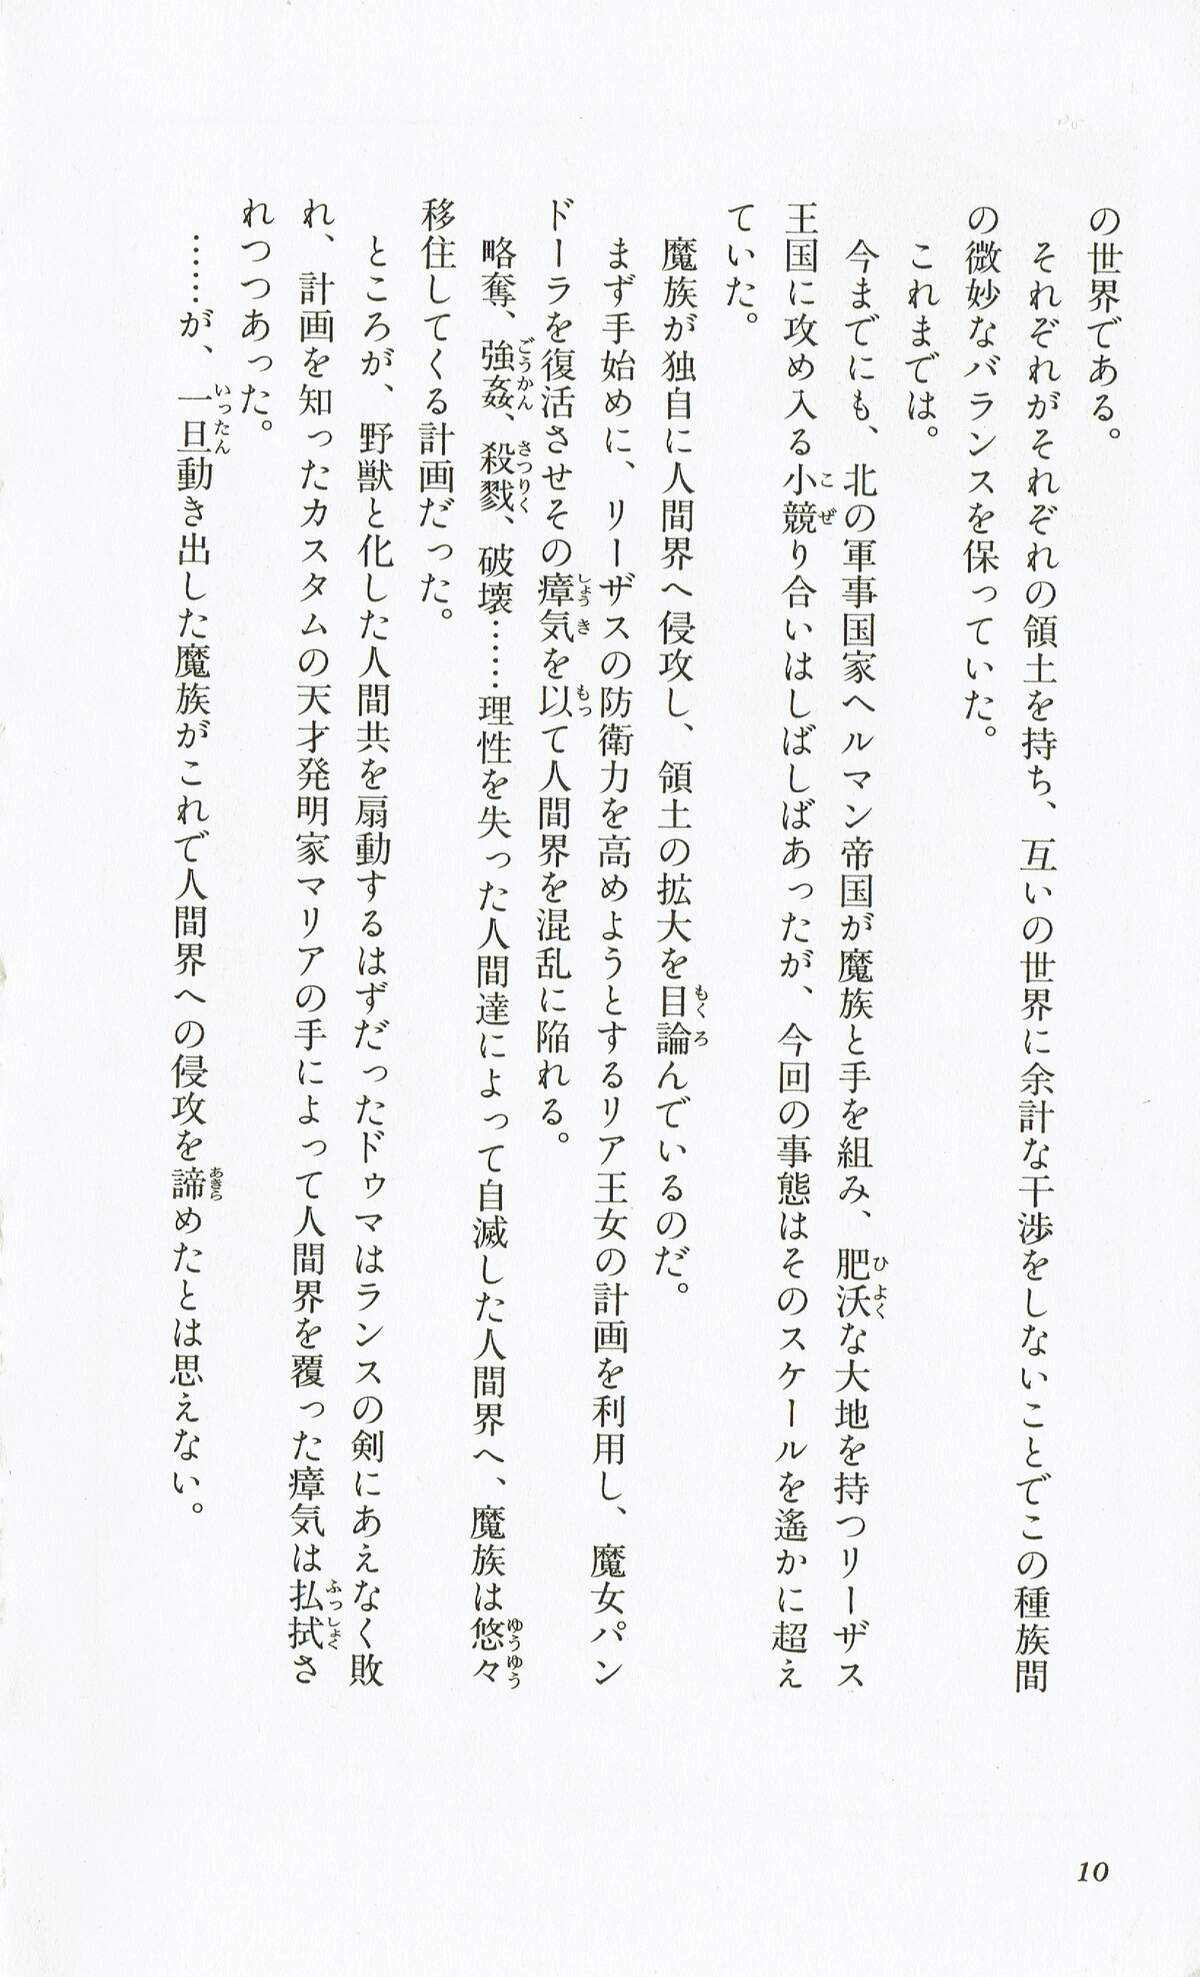 の世界である。
それぞれがそれぞれの領土を持ち、互いの世界に余計な干渉をしないことでこの種族間
の微妙なバランスを保っていた。
これまでは。
今までにも、北の軍事国家ヘルマン帝国が魔族と手を組み、肥沃な大地を持つリーザス
王国に攻め入る小競り合いはしばしばあったが、今回の事態はそのスケールを遙かに超え
ていた。
魔族が独自に人間界へ侵攻し、領土の拡大を目論んでいるのだ。
まず手始めに、リーザスの防衛力を高めようとするリア王女の計画を利用し、魔女パン
ドーラを復活させその瘴気を以て人間界を混乱に陥れる。
略奪、強姦、殺戮、破壊……理性を失った人間達によって自滅した人間界へ、魔族は悠々
移住してくる計画だった。
ところが、野獣と化した人間共を扇動するはずだったドゥマはランスの剣にあえなく敗
れ、計画を知ったカスタムの天才発明家マリアの手によって人間界を覆った瘴気は払拭さ
れつつあった。
……が、一旦動き出した魔族がこれで人間界への侵攻を諦めたとは思えない。
10